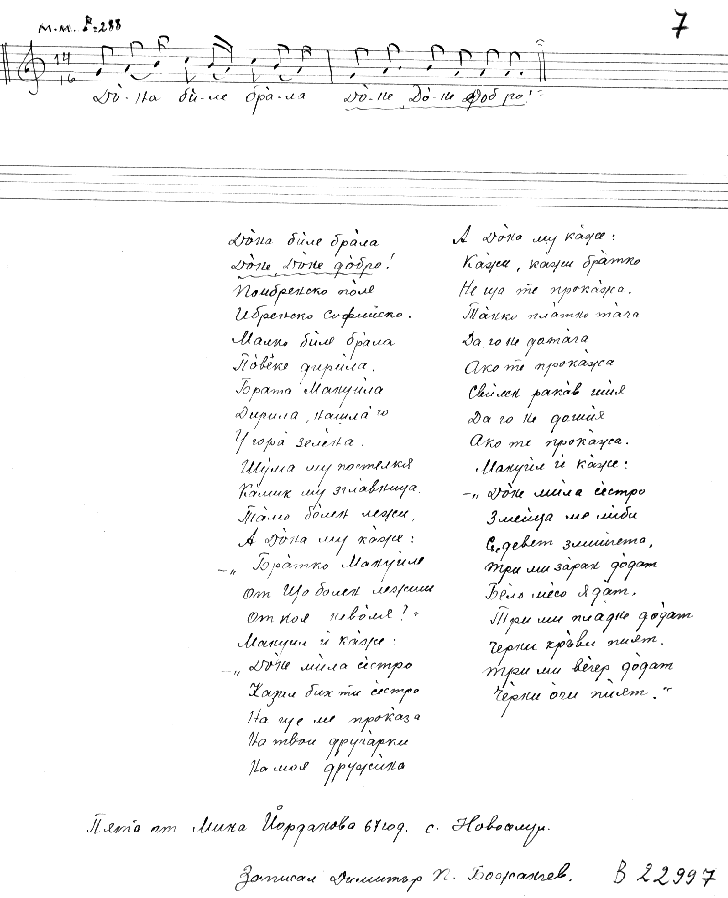 7
М.М. =288
14
16
До̀-на би-ле бра-ла До̀-не, До̀-не добро!
До̀на биле бра̀ла
До̀не, До̀не до̀бро!
Поибренско по̀ле
Ибренско Софийско.
Малко билѐ брала
По̀вѐке дирѝла.
Брата Мануѝла
Дирила, нашла̀ го
У гора̀ зелѐна.
Шу̀ма му постелкя
Ка̀мик му зглавница.
Та̀мо бо̀лен лежи,
А До̀на му ка̀же:
–„ Бра̀тко Мануѝле
От що болен лежиш
От коя нево̀ля?"
Мануил ѝ ка̀же:
–„ До̀не мѝла сѐстро
Казил бих ти сѐстро
На ще ме проказа
На твои друга̀рки
На моя дружѝна
А До̀на му ка̀же:
Ка̀жи, кажи бра̀тко
Не що те прока̀жа.
Та̀нко пла̀тно та̀ча
Да го не дота̀ча
Ако те прока̀жа
Свѝлен рака̀в шия
Да го не дошѝя
Ако те прока̀жа.
Мануѝл ѝ каже:
–„ До̀не мѝла сѐстро
Змеица ме люби
С девет змийчета,
три ми заран до̀дат
Бѐло мѐсо я̀дат,
Три ми пладне до̀дат
Черни кръ̀ви пият.
три ми вѐчер до̀дат
Чѐрни о̀чи пѝят."
Пята от Мина Йорданова 67 год. с. Новоселци.
Записал Димитър П. Божанчев. В 22997